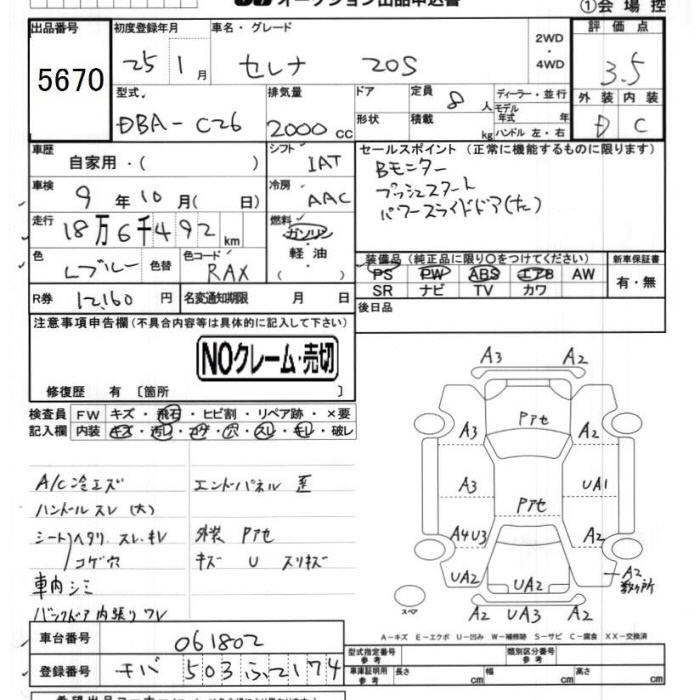 オークション出品申込書
①会場控
出品番号
5670
初度登録年月
25 1月
車名・グレード
セレナ 20S
2WD
・
4WD
評価点
3.5
外装 内装
D C
型式
DBA-C26
排気量
2000cc
ドア
形状
定員 8人
積載 kg
ディーラー・並行
モデル年式 年
ハンドル 左・右
車歴
自家用・( )
シフト
IAT
セールスポイント (正常に機能するものに限ります)
Bモニター
プッシュスタート
パワースライドドア(左)
車検
9年10月( 日)
冷房
AAC
走行
18万6千492km
燃料
ガソリン
軽油
( )
色
Lブルー
色替
色コード
RAX
装備品 (純正品に限り○をつけてください)
PS PW ABS エアB AW
SR ナビ TV カワ
新車保証書
有・無
R券
12,160円
名変通知期限 月 日
後日品
注意事項申告欄(不具合内容等は具体的に記入して下さい)
NOクレーム・売切
修復歴 有〔箇所 〕
検査員 FW キズ・飛石・ヒビ割・リペア跡・×要
記入欄 内装 キズ・汚レ・コゲ・穴・スレ・キレ・破レ
A/C冷エズ
ハンドルスレ(大)
シートヘタリ スレ・キレ
コゲ穴
車内シミ
バックドア内張りワレ
エンドパネル歪
外装 Pアセ
キズ U スリキズ
A3 A2
Pアセ
A3 A2
A3 Pアセ UA1
A4U3 A2
UA2 UA2 A2
数ヶ所
スペア
A2 UA3 A2
A-キズ E-エクボ U-凹み W-補修跡 S-サビ C-腐食 XX-交換済
車台番号
061802
登録番号
チバ 503 ふ2174
型式指定番号
参考
類別区分番号
参考
車庫証明用
参考
長さ cm 幅 cm 高さ cm